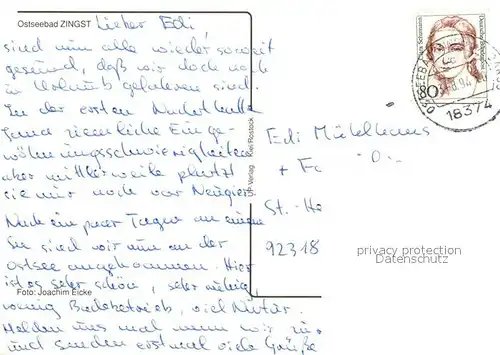 Ostseebad ZINGST
Lieber Edi
sind nun alle wieder soweit
gesund, daß wir doch noch
in Urlaub gefahren sind.
In der ersten Nacht hatte
Jana ziemliche Einge-
wöhnungsschwierigkeiten
aber mittlerweile platzt
sie nur noch vor Neugier.
Nach ein paar Tagen an einem
See sind wir nun an der
Ostsee angekommen. Hier
ist es sehr schön, sehr ruhig,
wenig Badebetrieb, viel Natur.
Melden uns mal wenn wir zu-
und senden erstmal viele Grüße
Foto: Joachim Eicke
Verlag
Rostock
80
18374
Edi
+ Fa
St.-He
92318
privacy protection
Datenschutz